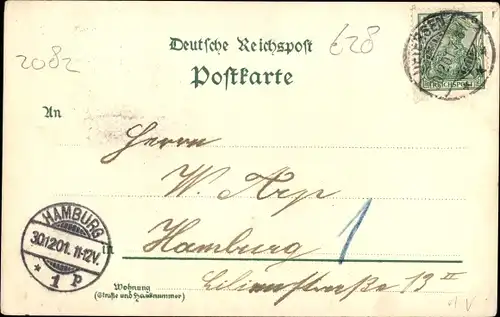 2082
628
Deutsche Reichspost
Postkarte
UETERSEN
REICHSPOST
An
Herrn
W. Arp
HAMBURG
30.12.01. 11-12V.
* 1 P
in
Hamburg
1
Lilienstraße 13 II
Wohnung
(Straße und Hausnummer)